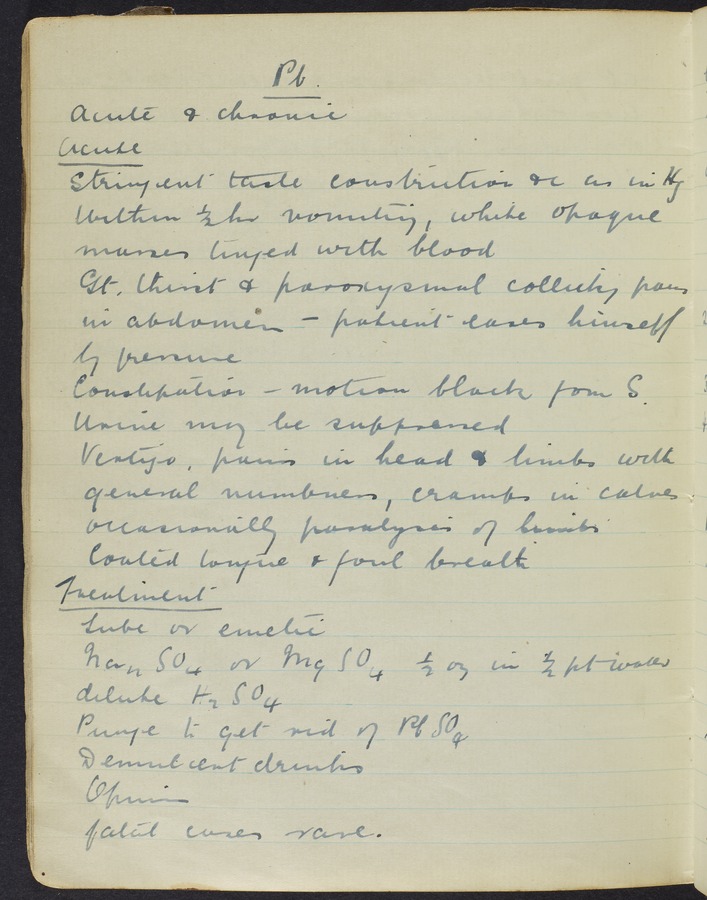 Pb.
Acute & chronic
Acute
Stringent taste constriction &c as in Hg
Within ½ hr vomiting, white opaque
masses tinged with blood
Gt. thirst & paroxysmal collicky pains
in abdomen – patient eases himself
by pressure
Constipation – motion black from S.
Urine may be suppressed
Vertigo, pains in head & limbs with
general numbness, cramps in calves
occasionally paralysis of limbs
Coated tongue & foul breath
Treatment
Tube or emetic
Na₂ SO₄ or Mg SO₄ ½ oz in ½ pt water
dilute H₂ SO₄
Purge to get rid of Pb SO₄
Demulcent drinks
Opium
fatal cases rare.